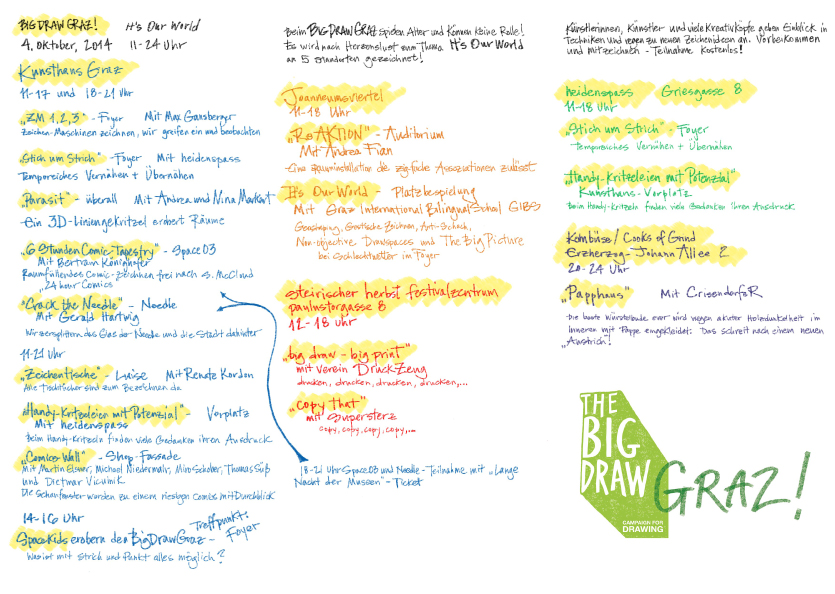 BIG DRAW GRAZ! It's Our World
4. Oktober, 2014 11-24 Uhr
Kunsthaus Graz
11-17 und 18-21 Uhr
„ZM 1,2,3" - Foyer Mit Max Gansberger
Zeichen-Maschinen zeichnen, wir greifen ein und beobachten
„Stich um Strich" - Foyer Mit heidenspass
Temporeiches Vernähen + Übernähen
„Parasit" - überall Mit Andrea und Nina Markart
Ein 3D-Liniengekritzel erobert Räume
„6 Stunden Comic Tapestry" - Space03
Mit Bertram Könighofer
Raumfüllendes Comic-Zeichnen frei nach S. McCloud
„24 hour Comics
„Crack the Needle" - Needle
Mit Gerald Hartwig
Wir zersplittern das Glas der Needle und die Stadt dahinter
11-21 Uhr
„Zeichentische" - Luise Mit Renate Kordon
Alle Tischtücher sind zum Bezeichnen da
„Handy-Kritzeleien mit Potenzial" - Vorplatz
Mit heidenspass
Beim Handy-Kritzeln finden viele Gedanken ihren Ausdruck
„Comics Wall" - Shop-Fassade
Mit Martin Elsner, Michael Niedermair, Miro Schober, Thomas Süß
und Dietmar
Die Schaufenster werden zu einem riesigen Comics mit Durchblick
14-16 Uhr
Treffpunkt:
Foyer
SpaceKids erobern den BigDrawGraz -
Was ist mit Strich und Punkt alles möglich?
Beim BIG DRAW GRAZ spielen Alter und Können keine Rolle!
Es wird nach Herzenslust zum Thema It's Our World
an 5 Standorten gezeichnet!
Joanneumsviertel
11-18 Uhr
„ReAKTION" - Auditorium
Mit Andrea Fian
Eine Rauminstallation die zigfache Assoziationen zulässt
It's Our World - Platzbespielung
Mit Graz International Bilingual School GIBS
Geoshaping, Groteske Zeichnen, Art-Scratch,
Non-objective Drawspaces und The Big Picture
bei Schlechtwetter im Foyer
steirischer herbst festivalzentrum
paulustorgasse 8
12-18 Uhr
„big draw - big print"
mit Verein DruckZeug
drucken, drucken, drucken, drucken,...
„Copy That"
mit Supersterz
Copy, copy, copy, copy,...
18-21 Uhr Space03 und Needle - Teilnahme mit „Lange
Nacht der Museen" - Ticket
Künstlerinnen, Künstler und viele Kreativköpfe geben Einblick in
Techniken und regen zu neuen Zeichenideen an. Vorbeikommen
und Mitzeichnen - Teilnahme Kostenlos!
heidenspass Griesgasse 8
11-18 Uhr
„Stich um Strich" - Foyer
Temporeiches Vernähen + Übernähen
„Handy-Kritzeleien mit Potenzial"
Kunsthaus-Vorplatz
Beim Handy-Kritzeln finden viele Gedanken ihren Ausdruck
Kombüse / Cooks of Grind
Erzherzog-Johann Allee 2
20-24 Uhr
„Papphaus" Mit CrisendorfaR
Die beste Würstelbude ever wird wegen akuter Holzdunkelheit im
Inneren mit Pappe eingekleidet: Das schreit nach einem neuen
„Anstrich"!
THE
BIG
DRAW
GRAZ!
CAMPAIGN FOR
DRAWING